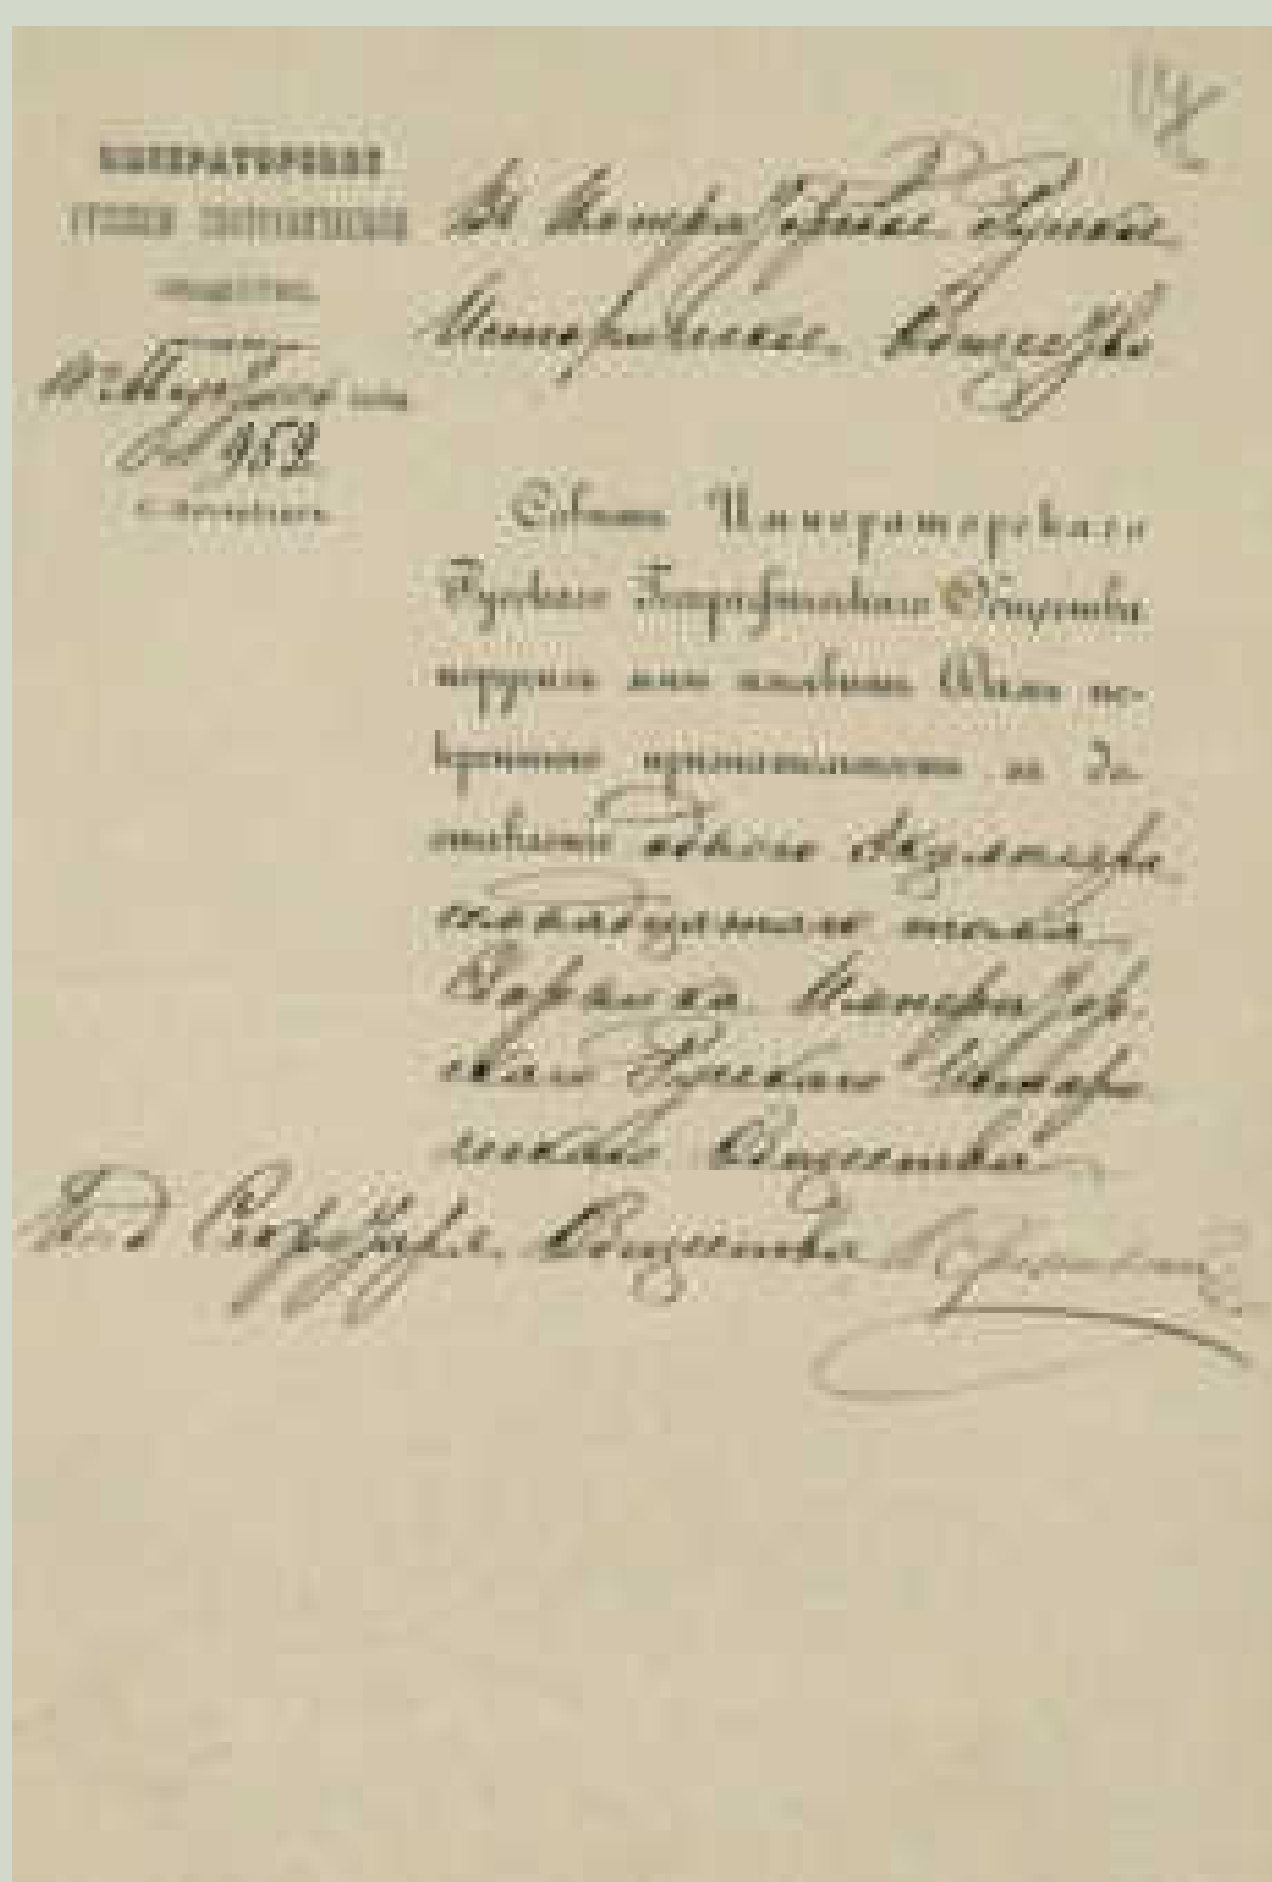 ИМПЕРАТОРСКОЕ
РУССКОЕ ГЕОГРАФИЧЕСКОЕ
ОБЩЕСТВО.
Марта
№ 952
С.-Петербургъ.
Въ Императорское Русское
Историческое Общество
Совѣтъ Императорскаго
Русскаго Географическаго Общества
поручилъ мнѣ изъявить Вамъ ис-
креннюю признательность за до-
ставленіе одного экземпляра
тома
Сборника Император-
скаго Русскаго Истори-
ческаго Общества
Секретаря Общества